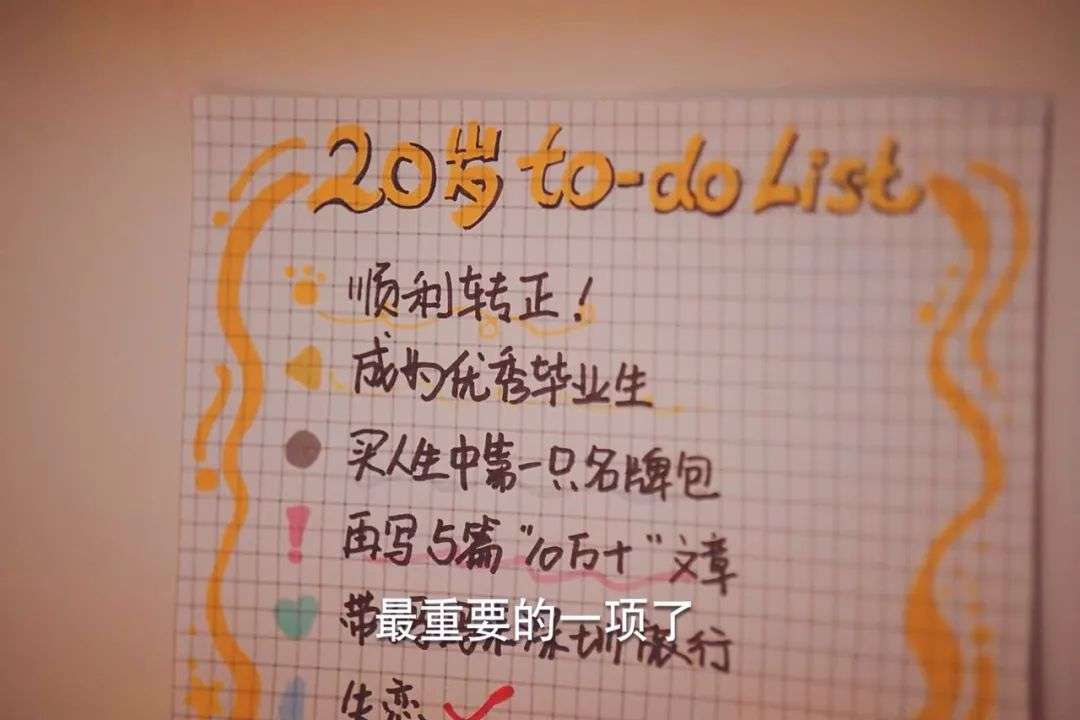 20岁 to-do List
顺利转正！
成为优秀毕业生
买人生中第一只名牌包
再写5篇“10万+”文章
带 旅行
最重要的一项了
失恋